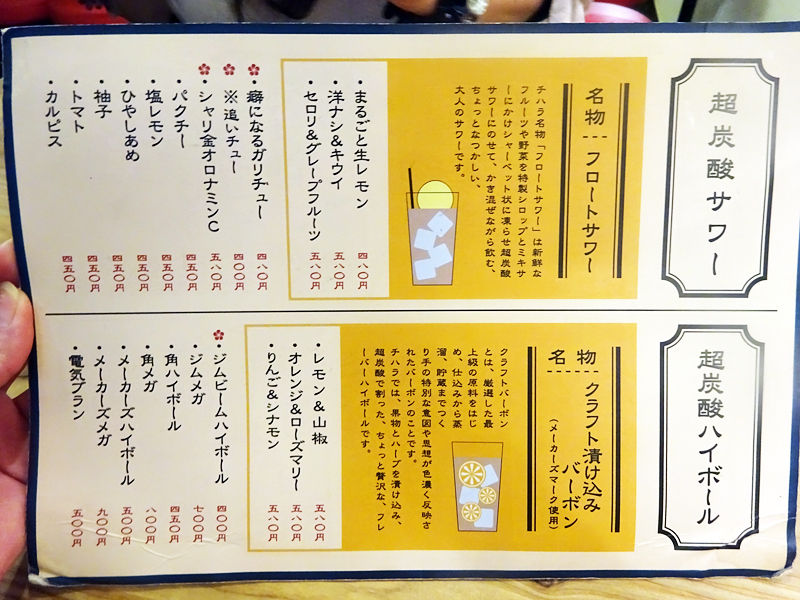 超炭酸サワー
名物
フロートサワー
チハラ名物「フロートサワー」は新鮮な
フルーツや野菜を特製シロップとミキサ
ーにかけシャーベット状に凍らせ超炭酸
サワーにのせて、かき混ぜながら飲む、
ちょっとなつかしい、
大人のサワーです。
・まるごと生レモン 四八〇円
・洋ナシ&キウイ 五八〇円
・セロリ&グレープフルーツ 五八〇円
・癖になるガリヂュー 四八〇円
・※追いチュー 四〇〇円
・シャリ金オロナミンC 五八〇円
・パクチー 四五〇円
・塩レモン 四五〇円
・ひやしあめ 四五〇円
・柚子 四五〇円
・トマト 四五〇円
・カルピス 四五〇円
超炭酸ハイボール
名物
クラフト漬け込み
バーボン
(メーカーズマーク使用)
クラフトバーボン
とは、厳選した最
上級の原料をはじ
め、仕込みから蒸
溜、貯蔵までつく
り手の特別な意図や思想が色濃く反映さ
れたバーボンのことです。
チハラでは、果物とハーブを漬け込み、
超炭酸で割った、ちょっと贅沢な、フレ
ーバーハイボールです。
・レモン&山椒 五八〇円
・オレンジ&ローズマリー 五八〇円
・りんご&シナモン 五八〇円
・ジムビームハイボール 四〇〇円
・ジムメガ 七〇〇円
・角ハイボール 四五〇円
・角メガ 八〇〇円
・メーカーズハイボール 五〇〇円
・メーカーズメガ 九〇〇円
・電気ブラン 五〇〇円